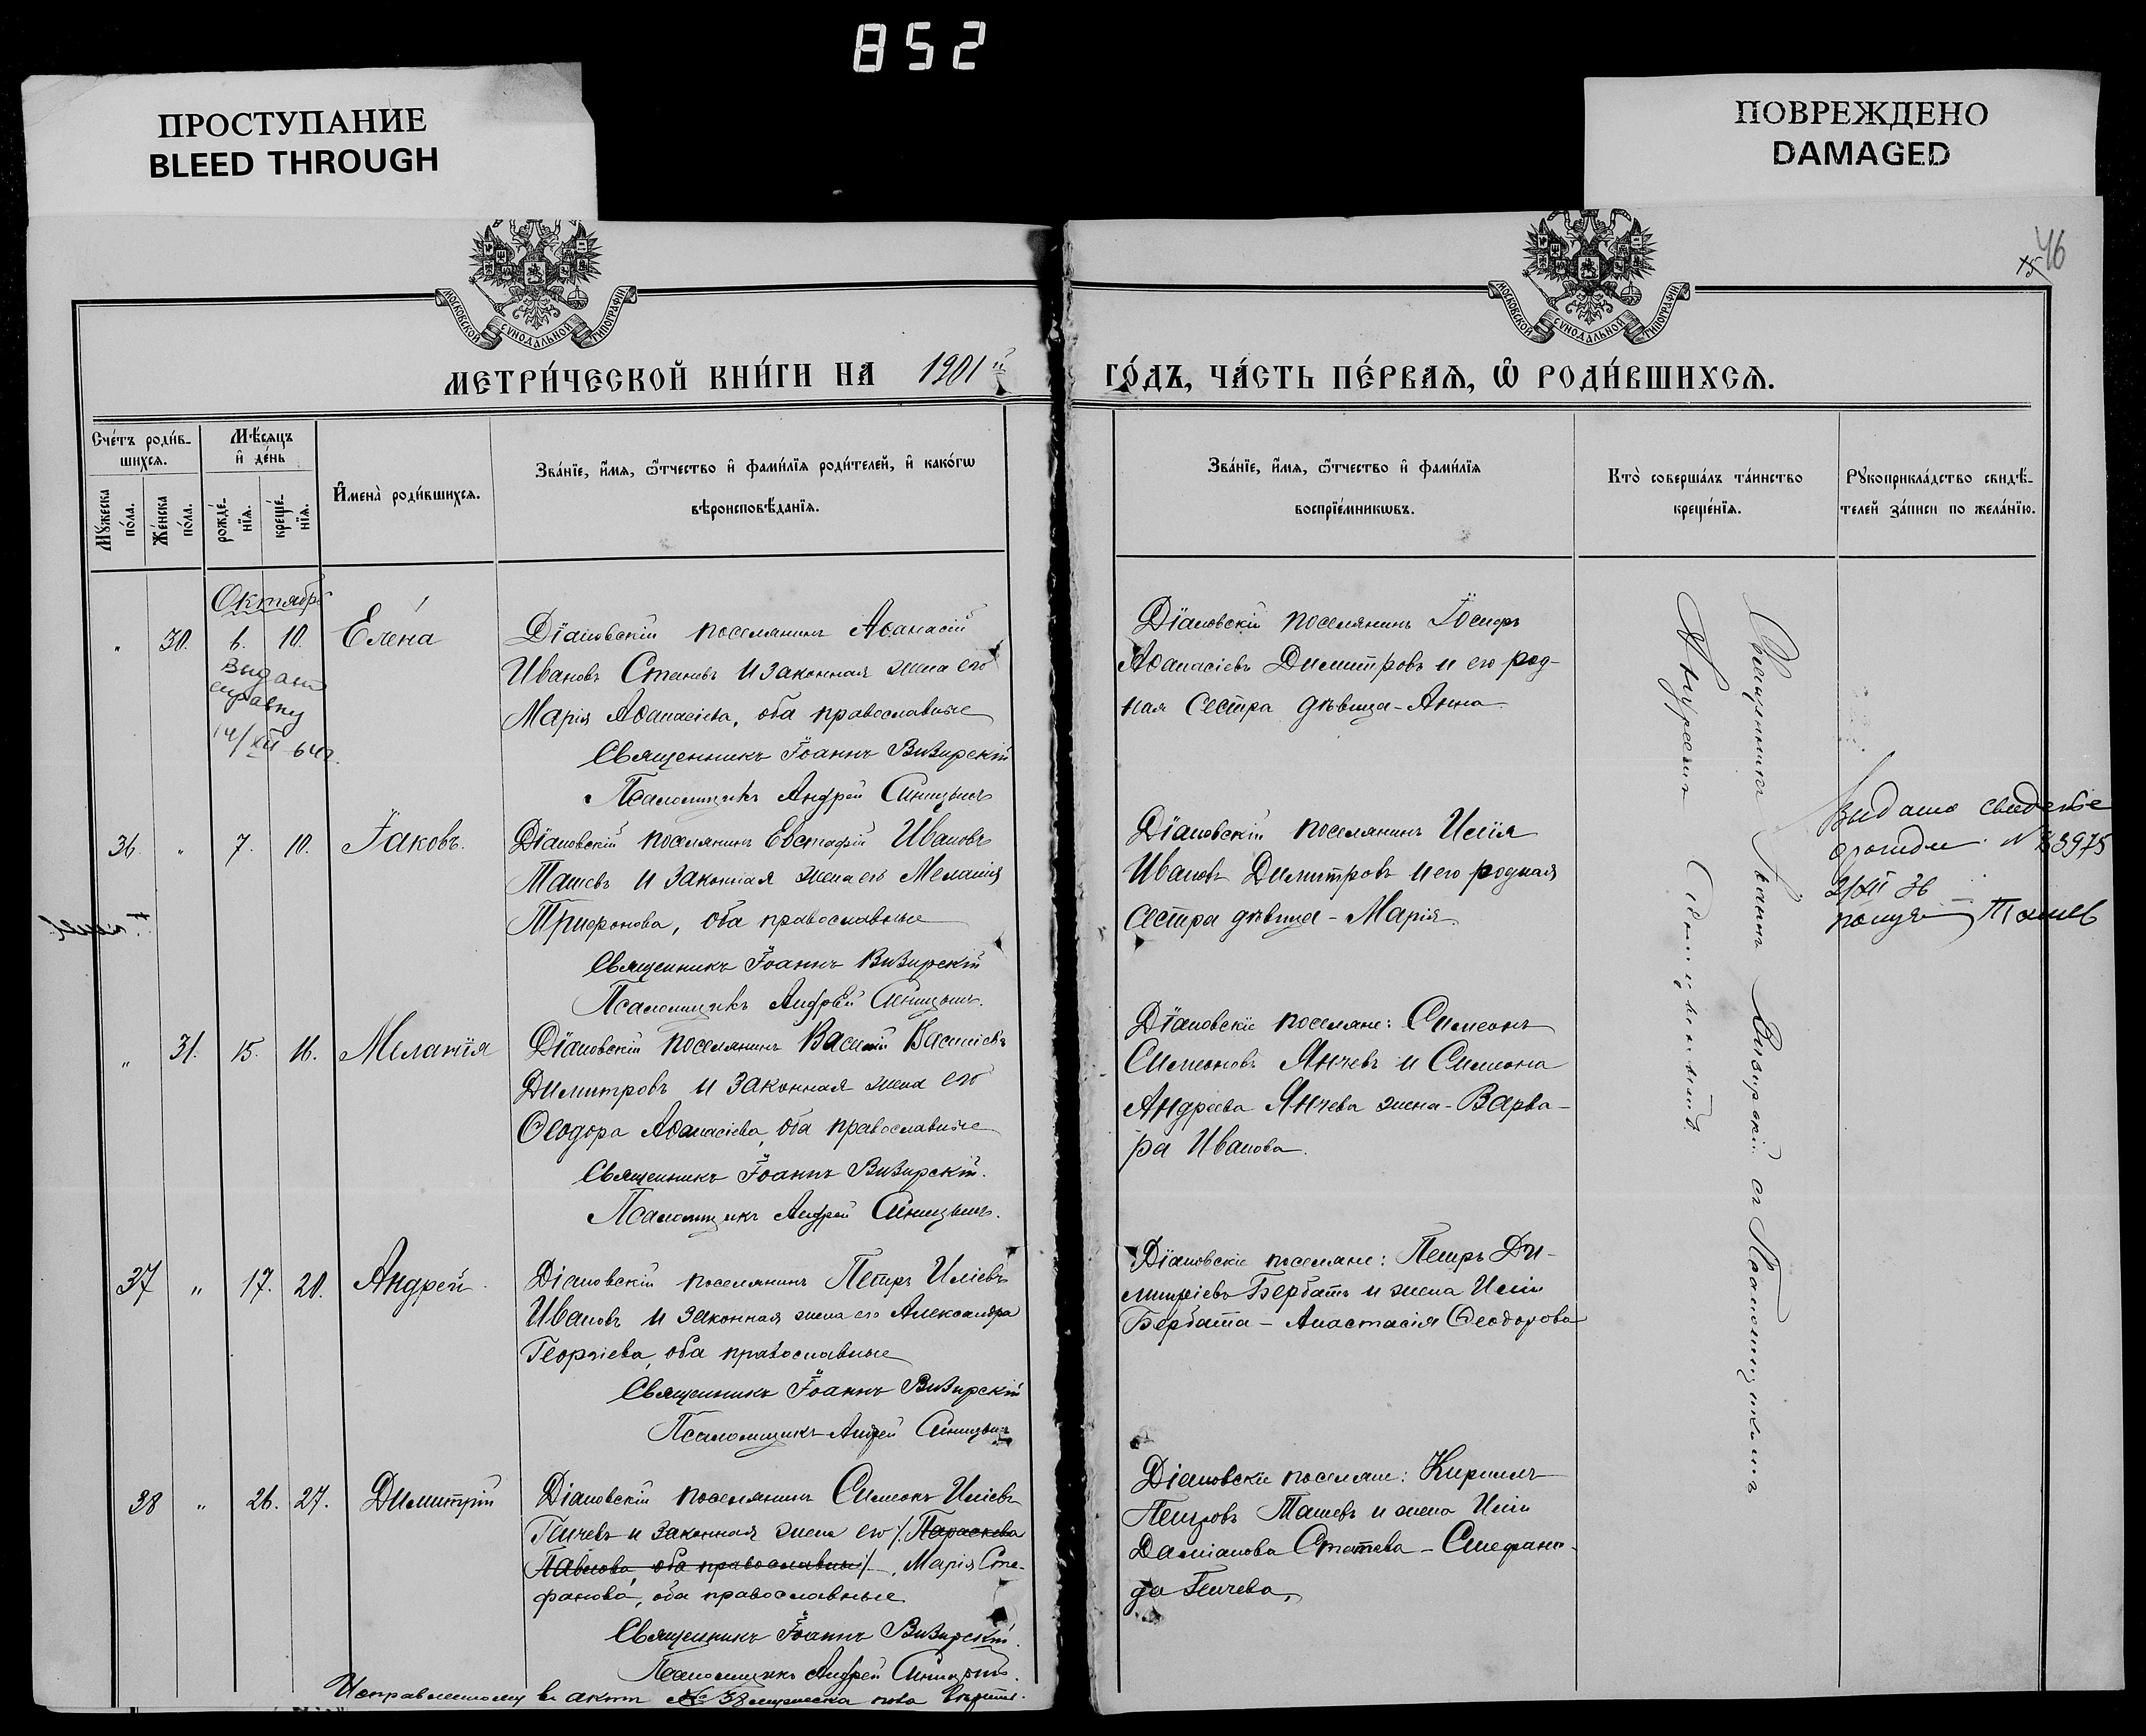 852
ПРОСТУПАНИЕ
BLEED THROUGH
ПОВРЕЖДЕНО
DAMAGED
46
МОСКОВСКОЙ СѴНОДАЛЬНОЙ ТИПОГРАФІИ
МОСКОВСКОЙ СѴНОДАЛЬНОЙ ТИПОГРАФІИ
МЕТРИ́ЧЕСКОЙ КНИ́ГИ НА 1901й
ГО́ДЪ, ЧА́СТЬ ПЕ́РВАЯ, Ѡ РОДИ́ВШИХСЯ.
Сче́тъ роди́в-
шихся.
Мѣ́сяцъ
и де́нь
Му́жеска
по́ла.
Же́нска
по́ла.
рожде́-
нїя.
креще́-
нїя.
Имена̀ роди́вшихся.
Зва́нїе, и́мя, ѻ́тчество и фами́лїя роди́телей, и како́гѡ
вѣроисповѣ́данїя.
Зва́нїе, и́мя, ѻ́тчество и фами́лїя
воспрїе́мникѡвъ.
Кто̀ соверша́лъ та́инство
креще́нїя.
Рукоприкла́дство свидѣ́-
телей за́писи по жела́нїю.
Октябрь
" 30. 6. 10. Елена
Видано
справку
14/XII-64г.
Діановскій поселянинъ Аѳанасій
Ивановъ Станевъ и законная жена его
Марія Аѳанасіева, оба православные
Священникъ Іоаннъ Визирскій
Псаломщикъ Андрей Синицынъ
Діановскій поселянинъ Іосифъ
Аѳанасіевъ Димитровъ и его род-
ная сестра дѣвица - Анна
36. " 7. 10. Іаковъ.
Діановскій поселянинъ Евстафій Ивановъ
Ташевъ и законная жена его Меланія
Трифонова, оба православные
Священникъ Іоаннъ Визирскій
Псаломщикъ Андрей Синицынъ.
Діановскій поселянинъ Илія
Ивановъ Димитровъ и его родная
сестра дѣвица - Марія
Видано свидетве
о рожден. № 33975
2/XII 36
получ Ташев
" 31. 15. 16. Меланія
Діановскій поселянинъ Василій Васильевъ
Димитровъ и законная жена его
Ѳеодора Аѳанасіева, оба православные
Священникъ Іоаннъ Визирскій.
Псаломщикъ Андрей Синицынъ.
Діановскіе поселяне: Симеонъ
Симеоновъ Янчевъ и Симеона
Андреева Янчева жена - Варва-
ра Иванова.
37 " 17. 20. Андрей
Діановскій поселянинъ Петръ Иліевъ
Ивановъ и законная жена его Александра
Георгіева, оба православные
Священникъ Іоаннъ Визирскій
Псаломщикъ Андрей Синицынъ
Діановскіе поселяне: Петръ Ди-
митріевъ Бербатъ и жена Иліи
Бербата - Анастасія Ѳеодорова
38 " 26. 27. Димитрій
Діановскій поселянинъ Симеонъ Иліевъ
Генчевъ и законная жена его /. Параскева
Павлова, оба православные /. Марія Сте-
фанова, оба православные
Священникъ Іоаннъ Визирскій.
Псаломщикъ Андрей Синицынъ.
Діановскіе поселяне: Кириллъ
Петровъ Ташевъ и жена Иліи
Даміанова Статева - Стефани-
да Генчева,
Священникъ Іоаннъ Визирскій съ Псаломщикомъ
Андреемъ Синицынымъ.
Исправленному въ актѣ № 38 мужеска пола вѣрить.